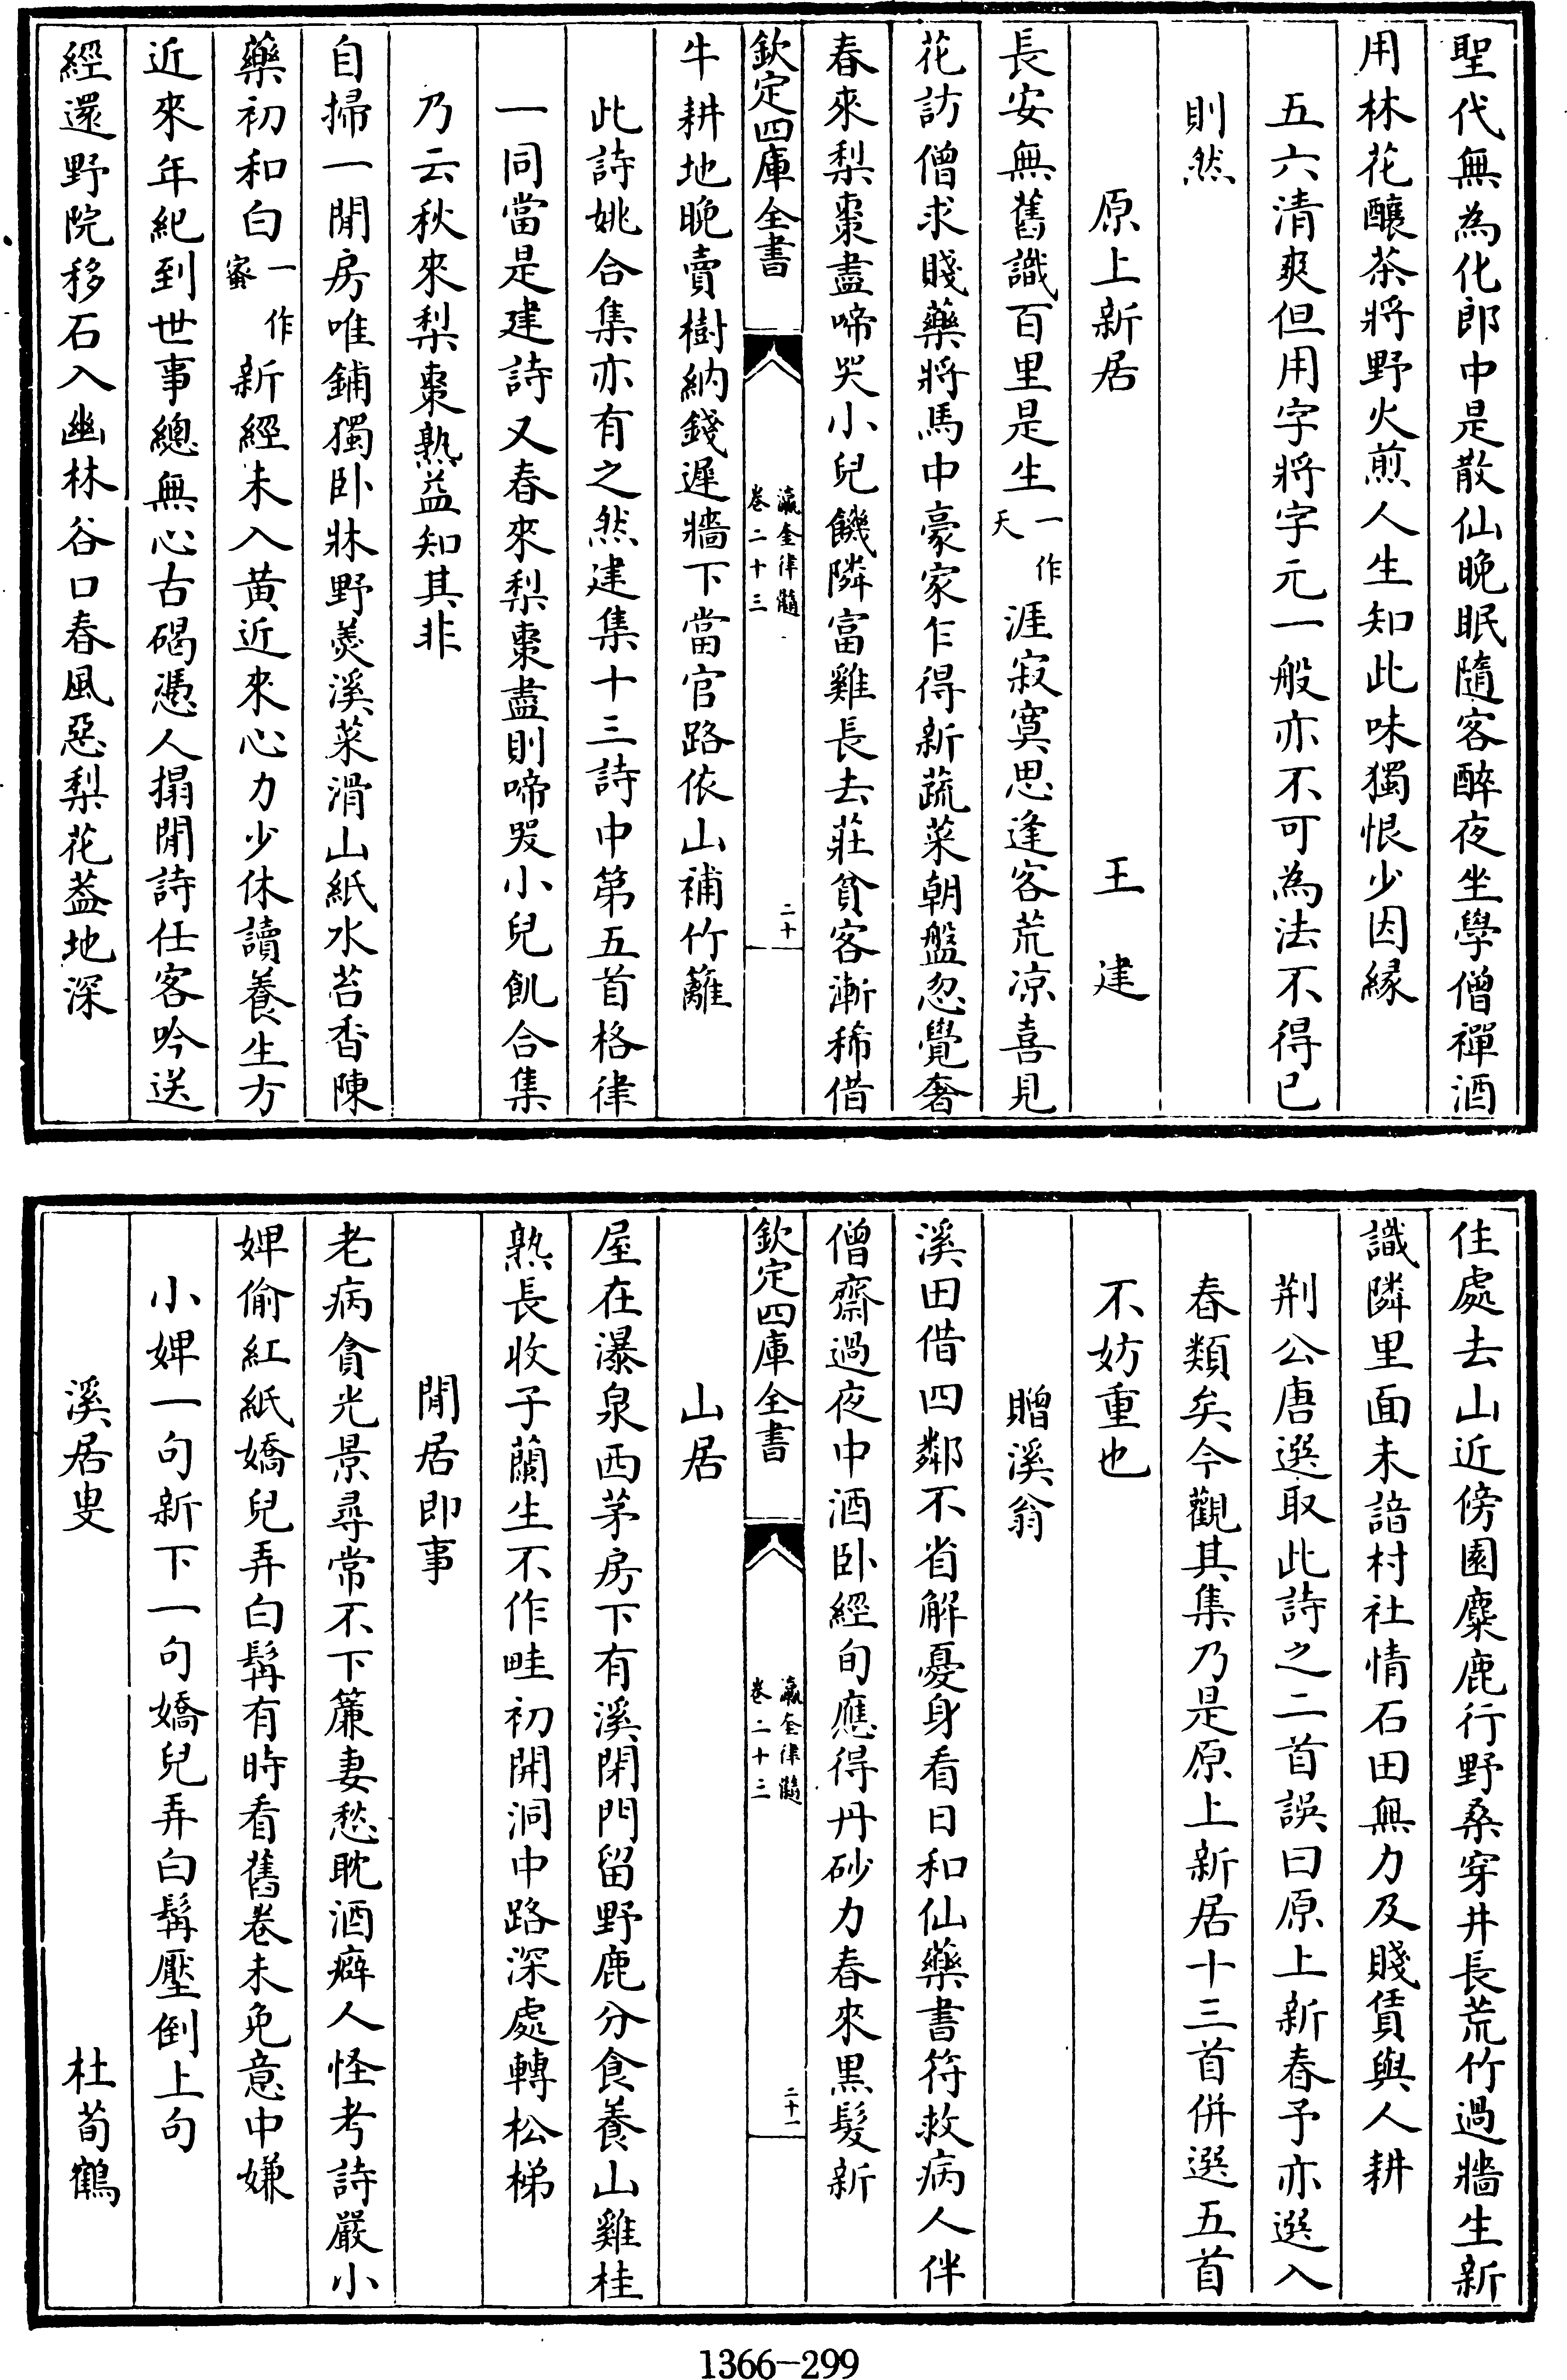 聖代無為化郎中是散仙晚眠隨客醉夜坐學僧禪酒
用林花釀茶將野火煎人生知此味獨恨少因緣
五六清爽但用字將字元一般亦不可為法不得已
則然
原上新居　王建
長安無舊識百里是生一作天涯寂寞思逢客荒凉喜見
花訪僧求賤藥將馬中豪家乍得新蔬菜朝盤忽覺奢
春來梨棗盡啼哭小兒饑隣富雞長去莊貧客漸稀借
欽定四庫全書　瀛奎律髓卷二十三　二十
牛耕地晚賣樹納錢遲牆下當官路依山補竹籬
此詩姚合集亦有之然建集十三詩中第五首格律
一同當是建詩又春來梨棗盡則啼哭小兒飢合集
乃云秋來梨棗熟益知其非
自掃一閒房唯鋪獨卧牀野羮溪菜滑山紙水苔香陳
藥初和白一作蜜新經未入黄近來心力少休讀養生方
近來年紀到世事總無心古碣憑人搨閒詩任客吟送
經還野院移石入幽林谷口春風惡梨花葢地深
住處去山近傍園麋鹿行野桑穿井長荒竹過牆生新
識隣里面未諳村社情石田無力及賤賃與人耕
荆公唐選取此詩之二首誤曰原上新春予亦選入
春類矣今觀其集乃是原上新居十三首併選五首
不妨重也
贈溪翁
溪田借四鄰不省解憂身看日和仙藥書符救病人伴
僧齋過夜中酒卧經旬應得丹砂力春來黒髮新
欽定四庫全書　瀛奎律髓卷二十三　二十一
山居
屋在瀑泉西茅房下有溪閉門留野鹿分食養山雞桂
熟長收子蘭生不作畦初開洞中路深處轉松梯
閒居即事
老病貪光景尋常不下簾妻愁耽酒癖人怪考詩嚴小
婢偷紅紙嬌兒弄白髯有時看舊卷未免意中嫌
小婢一句新下一句嬌兒弄白髯壓倒上句
溪居叟　杜荀鶴
1366-299